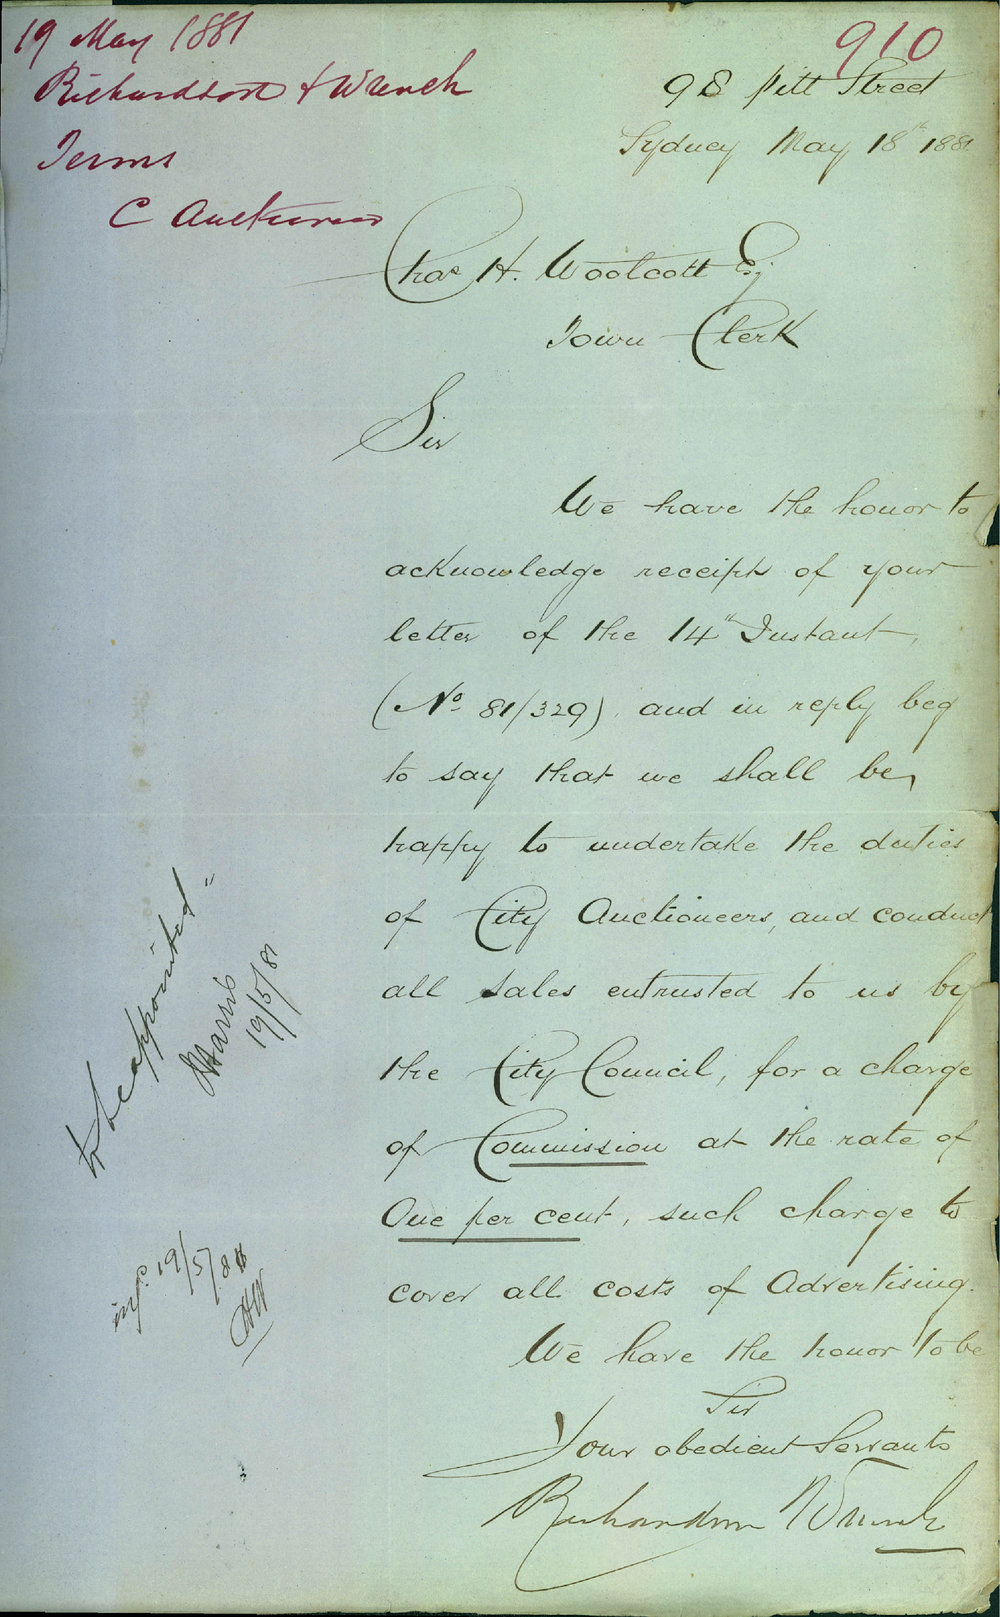 19 May 1881
Richardson & Wrench
Terms
C Auctioneers
910
98 Pitt Street
Sydney May 18th 1881
Chas H. Woolcott Esq
Town Clerk
Sir
We have the honor to
acknowledge receipt of your
letter of the 14th Instant,
(No. 81/329), and in reply beg
to say that we shall be
happy to undertake the duties
of City Auctioneers, and conduct
all sales entrusted to us by
the City Council, for a charge
of Commission at the rate of
One per cent, such charge to
cover all costs of Advertising.
We have the honor to be
Sir
Your obedient Servants
Richardson Wrench
to be appointed
Harris
19/5/81
19/5/81